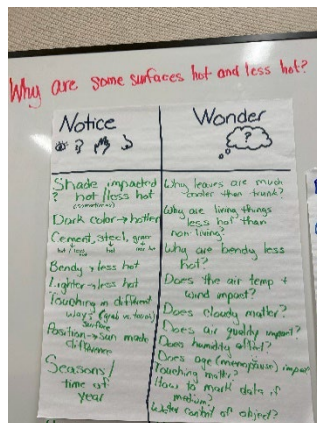 Why are some surfaces hot and less hot?
Notice
Shade impacted
? hot/less hot
(sometimes)
Dark color → hotter
Cement, steel, grass
hot
Bendy → less hot
Lighter → less hot
Touching in different
ways (grab vs. touch)
surface
Position → sun made
difference
Seasons/
time of
year
Wonder
?
Why leaves are much
cooler than trunk?
Why are living things
less hot than
non-living?
Why are bendy less
hot?
Does the air temp +
wind impact?
Does cloudy matter?
Does air quality impact?
Does humidity affect?
Does age (menopause) impact
touching matter?
How to mark data if
medium?
Water content of object?